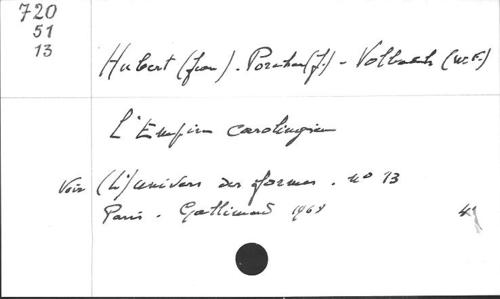 720
51
13
Hubert (Jean). Porcher (J.) - Volbach (W.F.)
L'Empire carolingien
Voir (L') univers des formes. no 13
Paris. Gallimard 1968